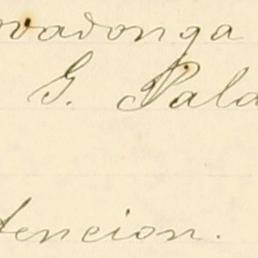 ovadonga
G. Pala
tencion.